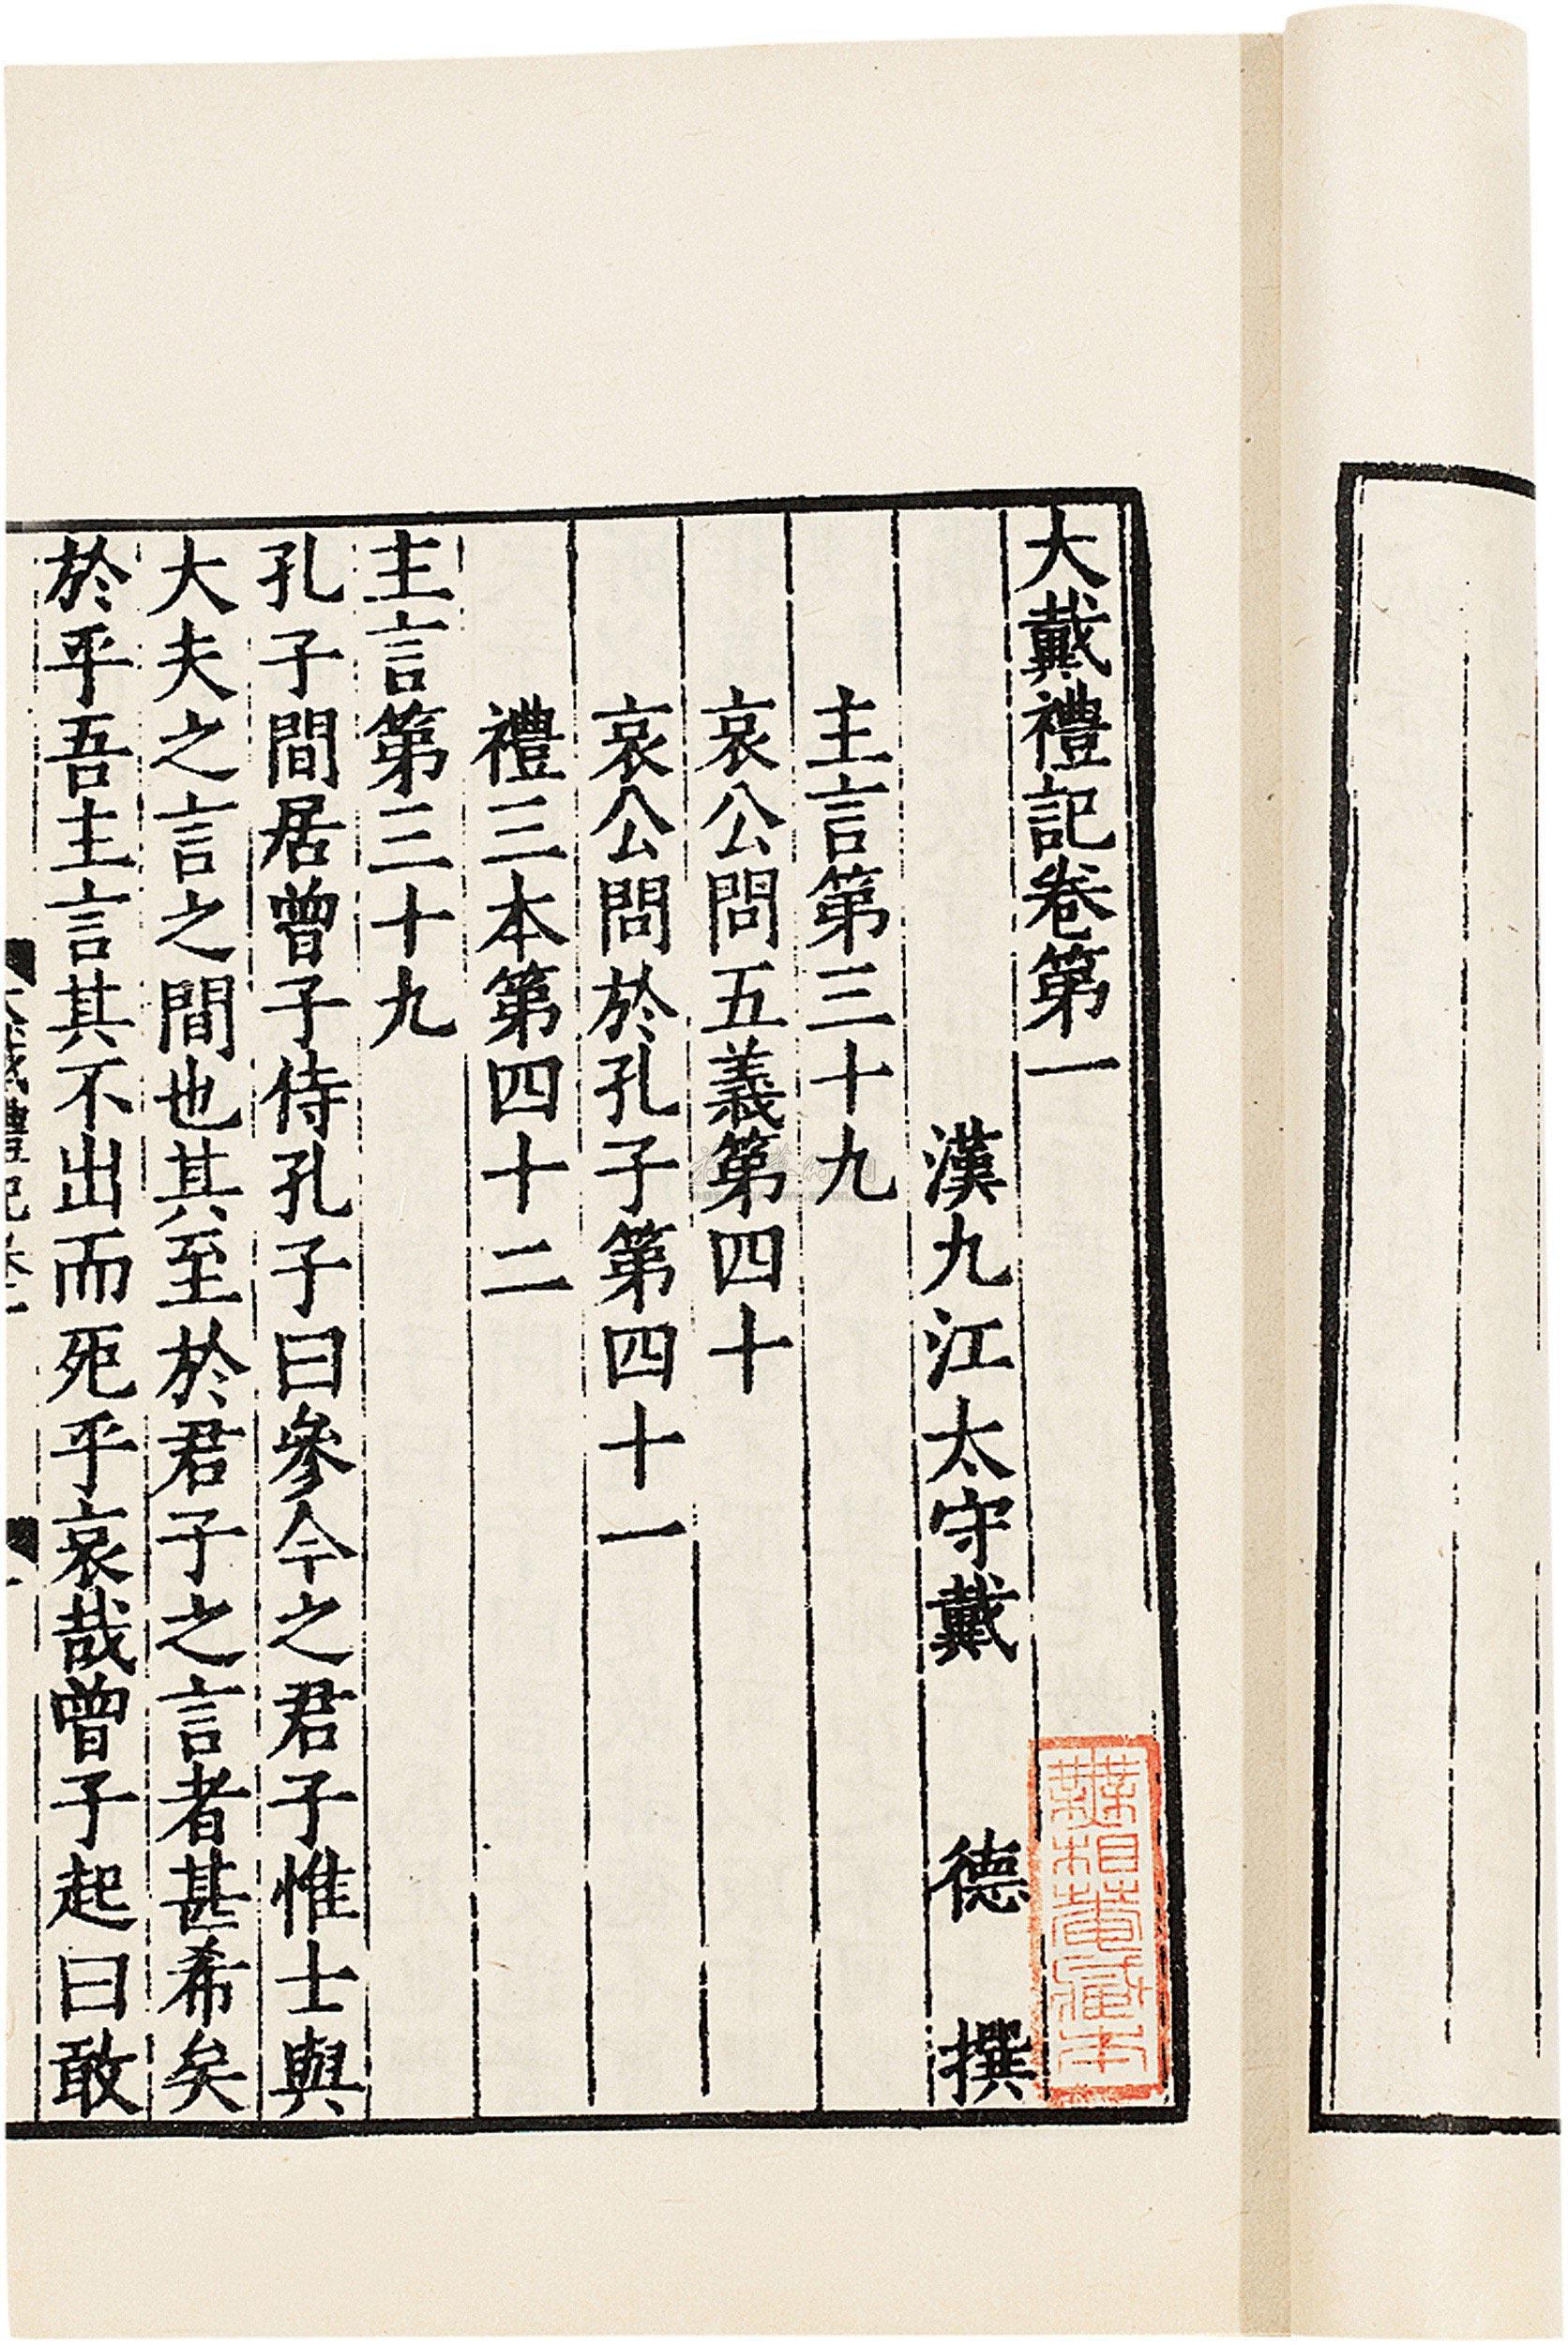 大戴禮記卷第一
漢九江太守戴 德 撰
主言第三十九
哀公問五義第四十
哀公問於孔子第四十一
禮三本第四十二
主言第三十九
孔子間居曾子侍孔子曰參今之君子惟士與
大夫之言之間也其至於君子之言者甚希矣
於乎吾主言其不出而死乎哀哉曾子起曰敢